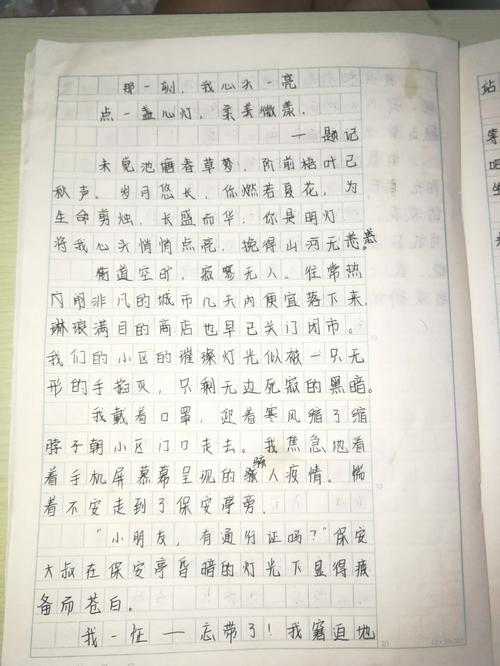 那一刻，我心头一亮
点一盏心灯，柔美微漾.
——题记
未觉池塘春草梦，阶前梧叶已
秋声。岁月悠长，你燃若夏花，为
生命剪烛，长盛而华，你是明灯
将我心头悄悄点亮，挽得山河无恙
街道空旷，寂寥无人。往常热
闹非凡的城市几天内便宜落下来,
琳琅满目的商店也早已关门闭市。
我们的小区的璀璨灯光似被一只无
形的手掐灭，只剩无边死寂的黑暗。
我戴着口罩，迎着寒风缩了缩
脖子朝小区门口走去。我焦急地看
着手机屏幕呈现的骇人疫情。惴
着不安走到了保安亭旁.
“小朋友，有通行证吗？”保安
大叔在保安亭昏暗的灯光下显得疲
备而苍白。
我一怔——忘带了！我窘迫地
站
等